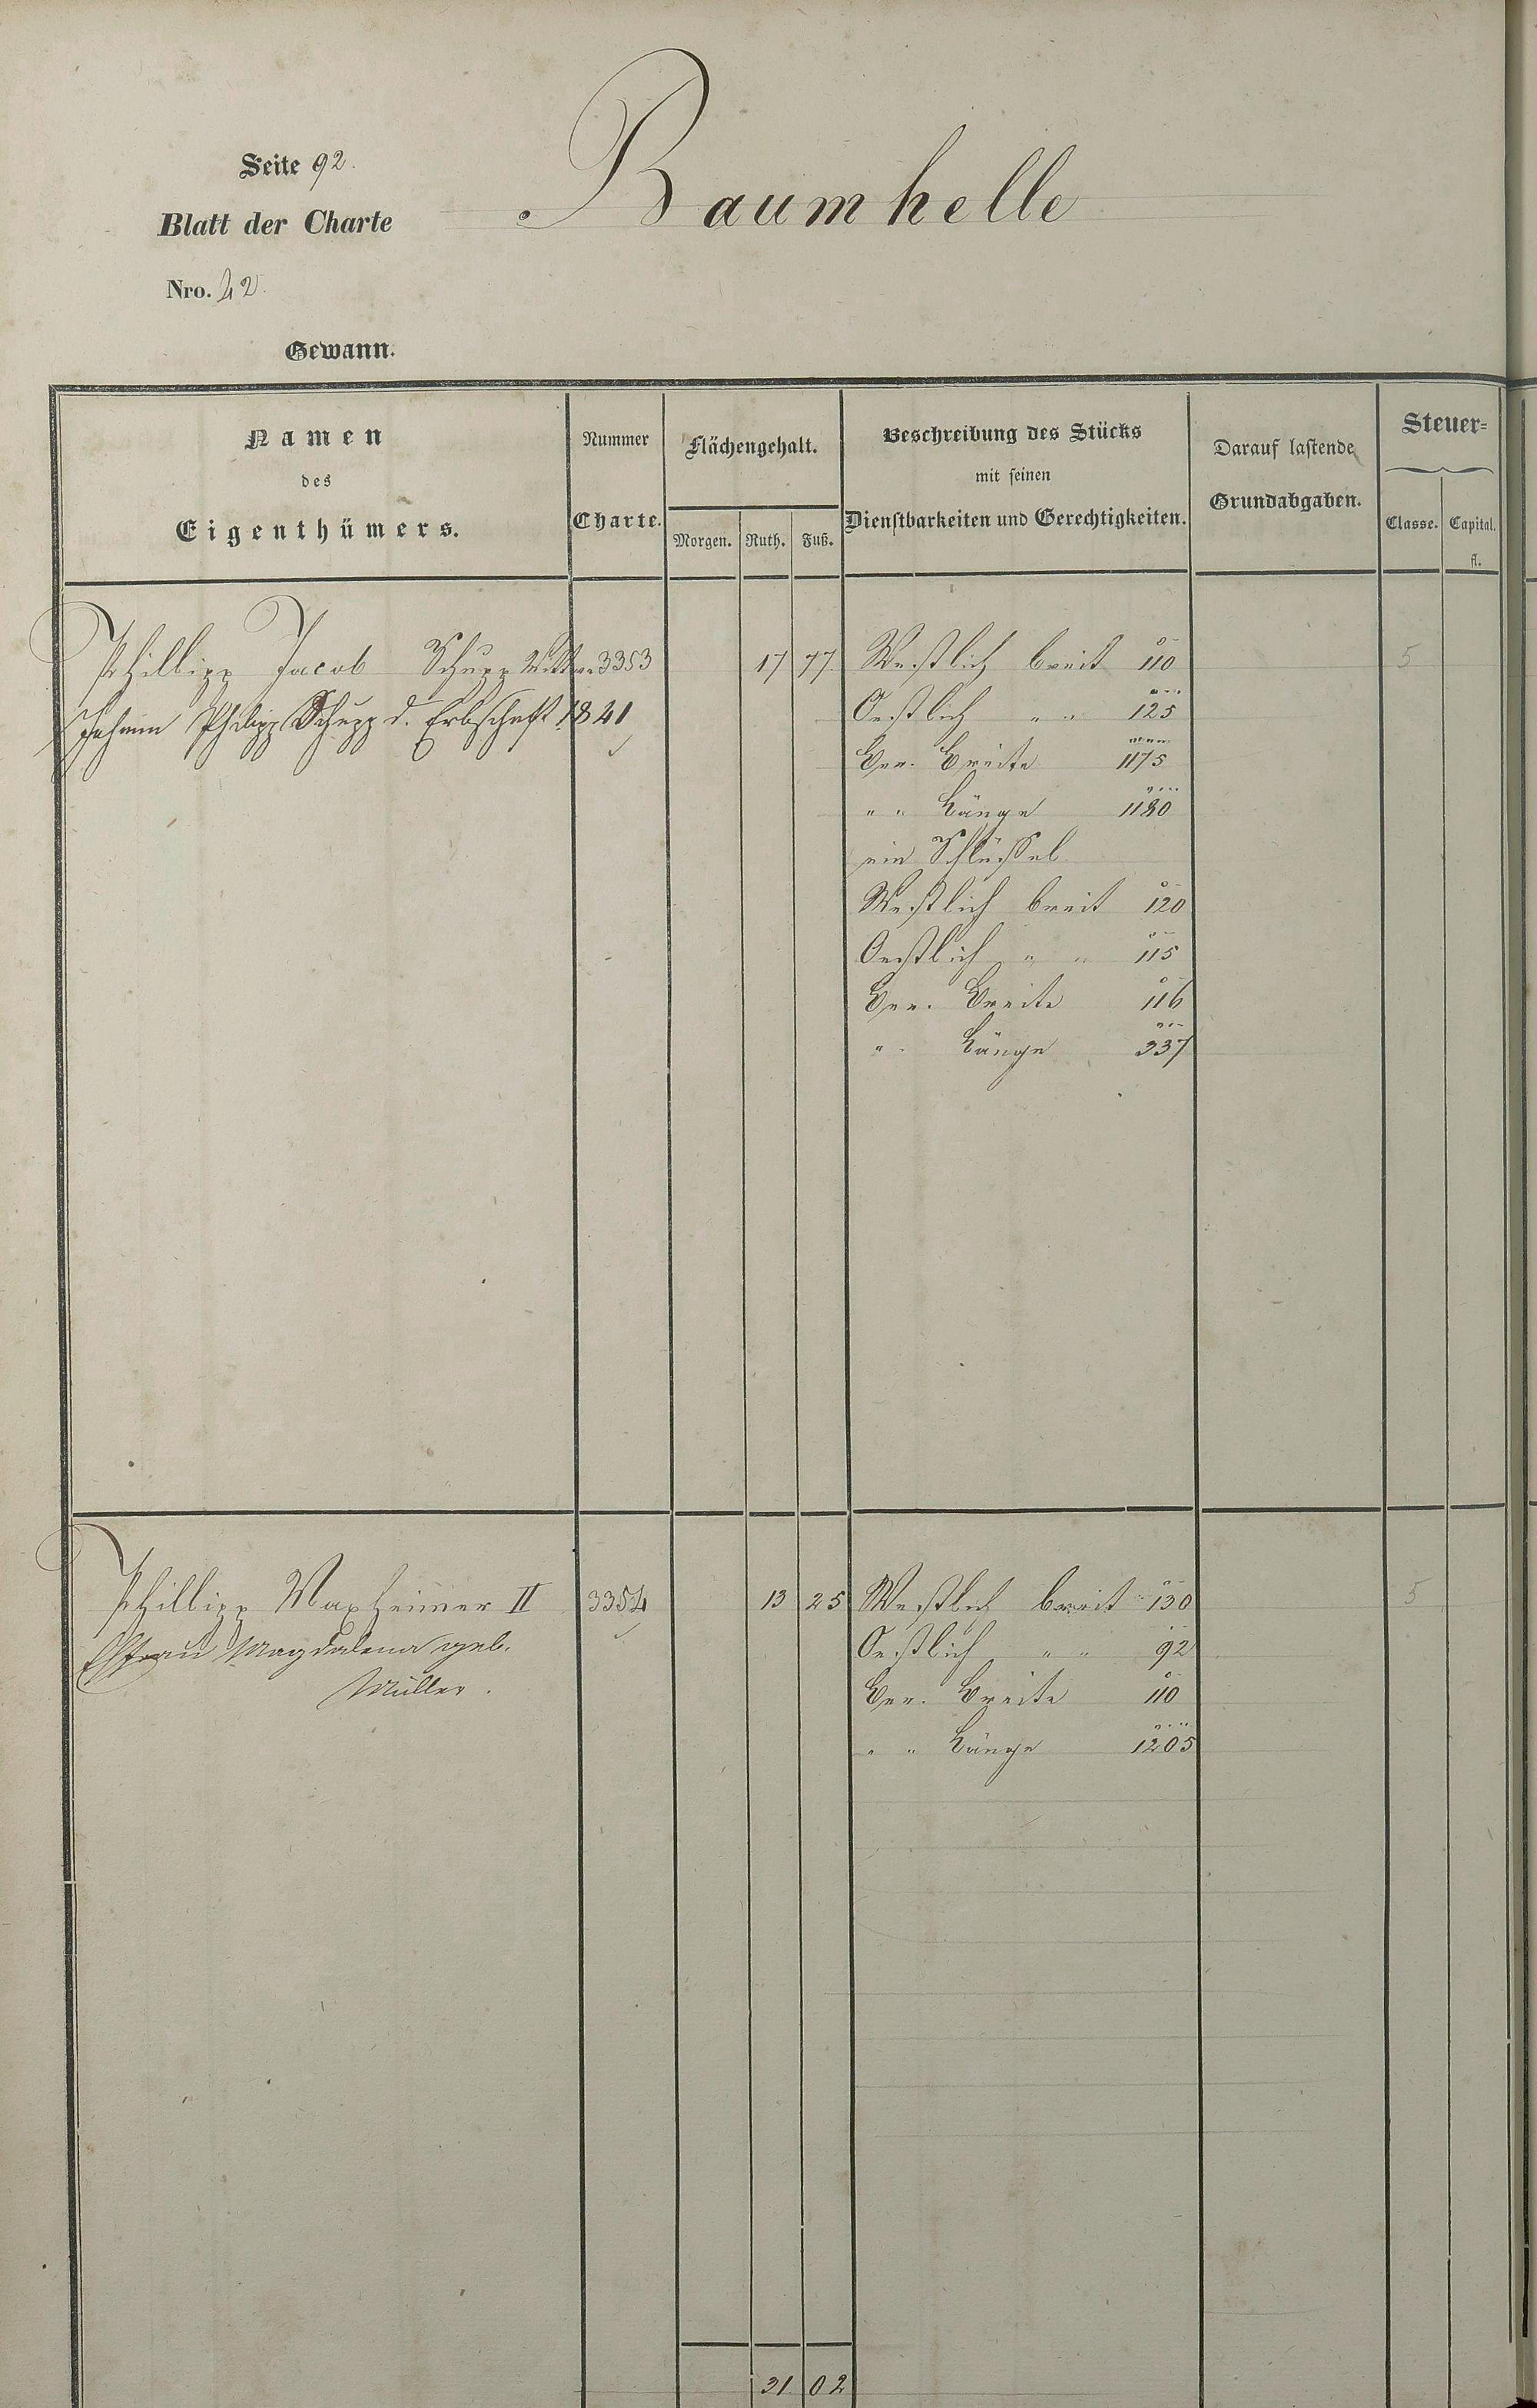 Seite 92.
Baumhelle
Blatt der Charte
Nro. 42.
Gewann.
Namen des Eigenthümers.
Nummer Charte.
Flächengehalt.
Morgen. Ruth. Fuß.
Beschreibung des Stücks
mit seinen
Dienstbarkeiten und Gerechtigkeiten.
Darauf lastende
Grundabgaben.
Steuer=
Classe. Capital.
fl.
Phillipp Jacob Schupp Wittwe 3353 17 77 Westlich breit 110 5
Johann Philipp Schupp d. Erbschaft 1841
Oestlich " " 125
Ver. Breite 1175
" " Länge 1180
ein Schlüssel
Westlich breit 120
Oestlich " " 115
Ver. Breite 116
" " Länge 337
Phillipp Maxheimer II 3354 13 25 Westlich breit 130 5
Ehfrau Magdalena geb.
Müller.
Oestlich " " 92
Ver. Breite 110
" " Länge 1205
31 02